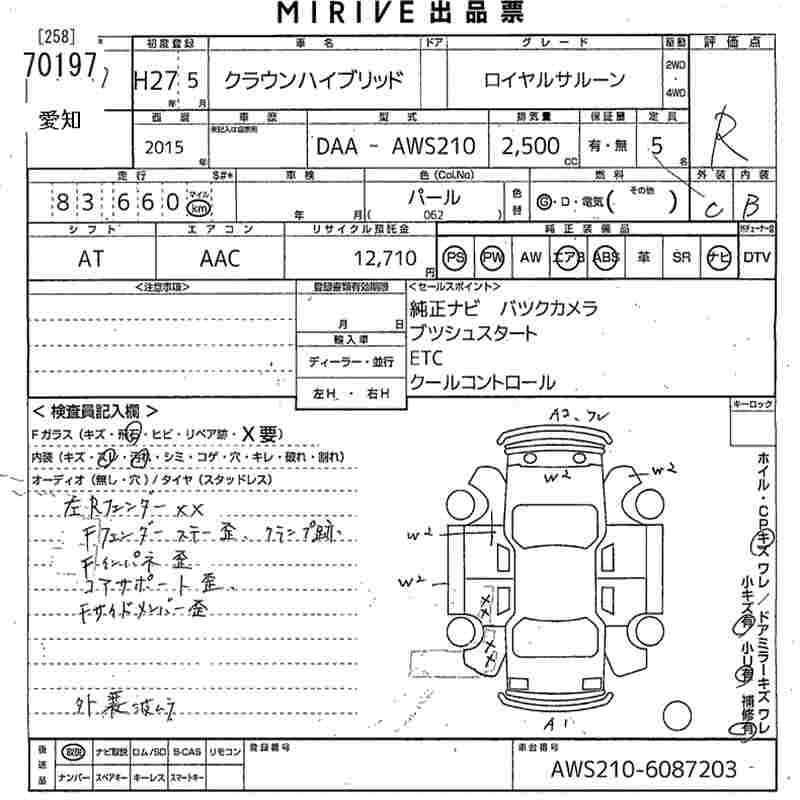 MIRIVE 出品票
[258]
70197
愛知
初度登録 車名 ドア グレード 駆動 評価点
H27 5 クラウンハイブリッド ロイヤルサルーン 2WD ・ 4WD
年 月
西暦 車歴 型式 排気量 保証書 定員
2015 年 DAA - AWS210 2,500 CC 有・無 5 名 R
走行 S#* 車検 色(Col.No) 燃料 外装 内装
83 660 マイル km 年 月 パール ( 062 ) 色替 G・D・電気( その他 ) C B
シフト エアコン リサイクル預託金 純正装備品
AT AAC 12,710 円 PS PW AW エアB ABS 革 SR ナビ DTV
<注意事項> 登録書類有効期限 <セールスポイント>
月 日 純正ナビ バツクカメラ
輸入車 プツシュスタート
ディーラー・並行 ETC
左H ・ 右H クールコントロール
< 検査員記入欄 > キーロック
Fガラス (キズ・飛石・ヒビ・リペア跡・X要)
内装 (キズ・スレ・汚れ・シミ・コゲ・穴・キレ・破れ・割れ)
オーディオ (無し・穴) / タイヤ (スタッドレス)
左Rフェンダー xx
Fフェンダー ステー歪、クランプ跡、
Fインパネ歪
コアサポート歪、
Fサイドメンバー歪
A2、ワレ
W2
W2
W2
W2
XX
XX
A1
ホイル・CPキズ ワレ / ドアミラーキズ ワレ
小キズ有 小U有 補修有
後送品 取説 ナビ取説 ロム/SD B-CAS リモコン
ナンバー スペアキー キーレス スマートキー
登録番号
車台番号
AWS210-6087203